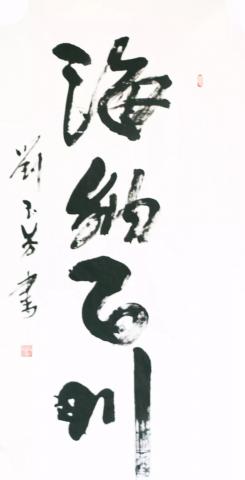 海納百川
劉玉芳書